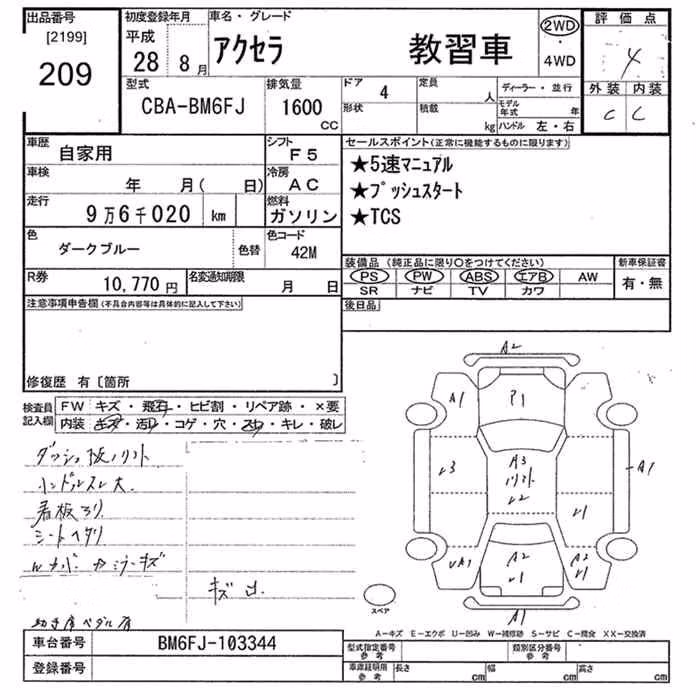 出品番号
[2199]
209
初度登録年月
平成
28 8月
車名・グレード
アクセラ 教習車
2WD
・
4WD
評価点
4
外装 内装
C C
型式
CBA-BM6FJ
排気量
1600
CC
ドア 4
形状
定員 人
積載 kg
ディーラー・並行
モデル年式 年
ハンドル 左・右
車歴
自家用
シフト
F5
車検
年 月( 日)
冷房
AC
走行
9万6千020 km
燃料
ガソリン
色
ダークブルー
色替
色コード
42M
R券
10,770円
名変通知期限
月 日
セールスポイント(正常に機能するものに限ります)
★5速マニュアル
★プッシュスタート
★TCS
装備品(純正品に限り○をつけてください)
PS PW ABS エアB AW
SR ナビ TV カワ
新車保証書
有・無
後日品
注意事項申告欄(不具合内容等は具体的に記入して下さい)
修復歴 有〔箇所 〕
検査員
記入欄
FW キズ・飛石・ヒビ割・リペア跡・×要
内装 キズ・汚れ・コゲ・穴・スレ・キレ・破レ
ハンドルスレ大
シートヘタリ
キズ凹
A2
A1 P1
A3
A1
A2
A2
A1
スペア
A−キズ E−エクボ U−凹み W−補修跡 S−サビ C−腐食 XX−交換済
車台番号 BM6FJ-103344
登録番号
型式指定番号
参考
類別区分番号
参考
車庫証明用
参考
長さ cm 幅 cm 高さ cm